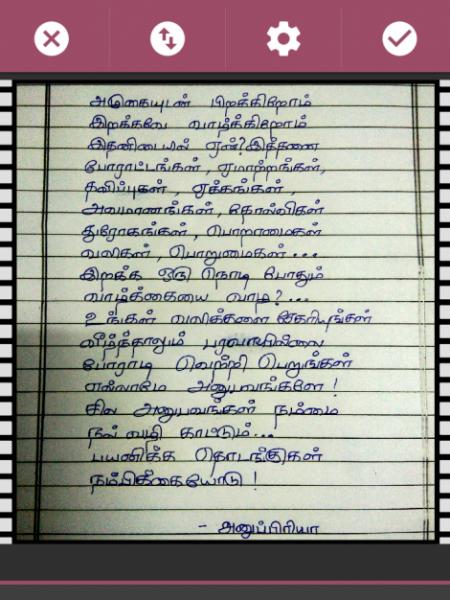 அழுகையுடன் பிறக்கிறோம்
இறக்கவே வாழ்க்கிறோம்
இதனிடையில் ஏன்? இத்தனை
போராட்டங்கள், ஏமாற்றங்கள்,
தவிப்புகள், ஏக்கங்கள்,
அவமானங்கள், தோல்விகள்
துரோகங்கள், பொறாமைகள்
வலிகள், பொறுமைகள்...
இறக்க ஒரு நொடி போதும்
வாழ்க்கையை வாழ?...
உங்கள் வலிக்களை சேகரியுங்கள்
வீழ்ந்தாலும் பரவாயில்லை
போராடி வெற்றி பெறுங்கள்
எல்லாமே அனுபவங்களே!
சில அனுபவங்கள் நம்மை
நல் வழி காட்டும்...
பயணிக்க தொடங்குகள்
நம்பிக்கையோடு!
- அனுப்பிரியா